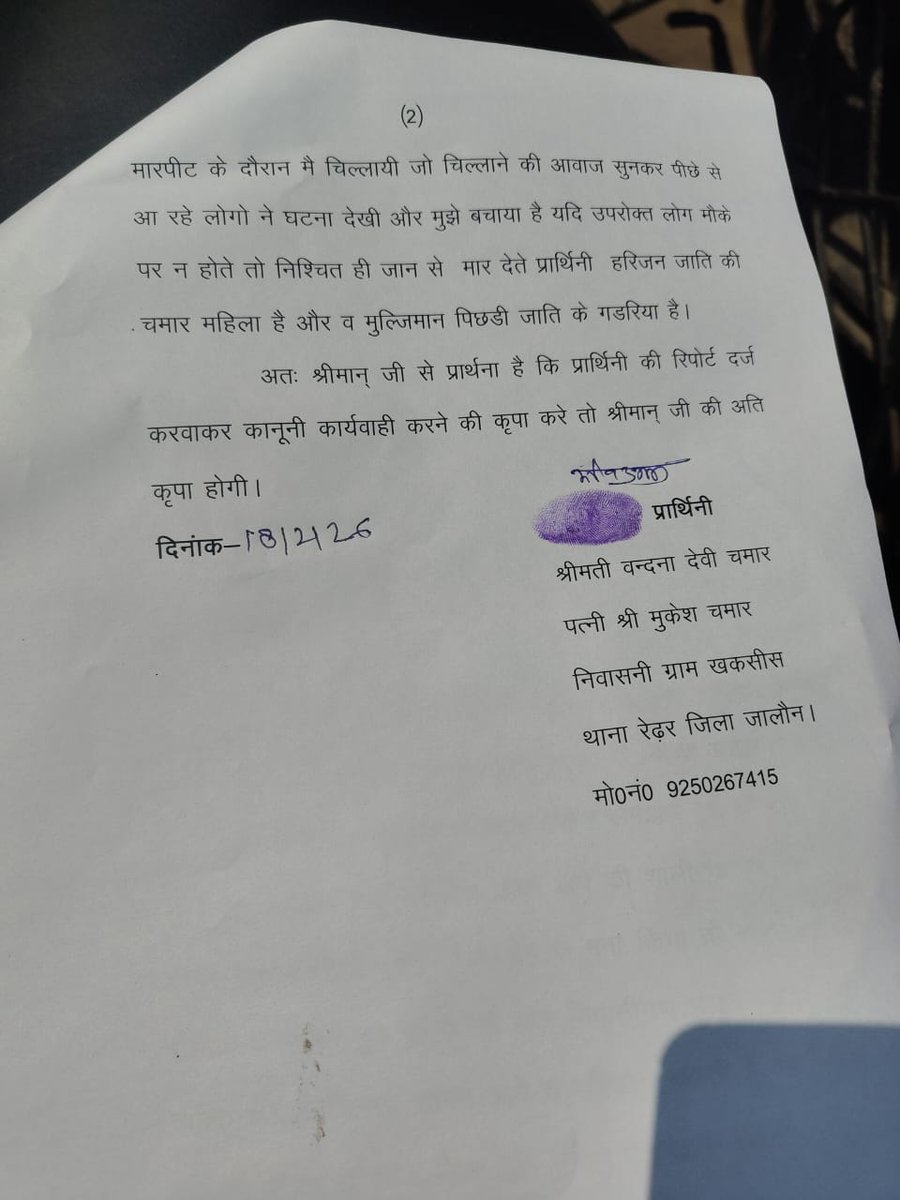 (2)
मारपीट के दौरान मै चिल्लायी जो चिल्लाने की आवाज सुनकर पीछे से
आ रहे लोगो ने घटना देखी और मुझे बचाया है यदि उपरोक्त लोग मौके
पर न होते तो निश्चित ही जान से मार देते प्रार्थिनी हरिजन जाति की
चमार महिला है और व मुल्जिमान पिछडी जाति के गडरिया है।
अतः श्रीमान् जी से प्रार्थना है कि प्रार्थिनी की रिपोर्ट दर्ज
करवाकर कानूनी कार्यवाही करने की कृपा करे तो श्रीमान् जी की अति
कृपा होगी।
दिनांक–18/2/26
प्रार्थिनी
श्रीमती वन्दना देवी चमार
पत्नी श्री मुकेश चमार
निवासनी ग्राम खकसीस
थाना रेढ़र जिला जालौन।
मो0नं0 9250267415